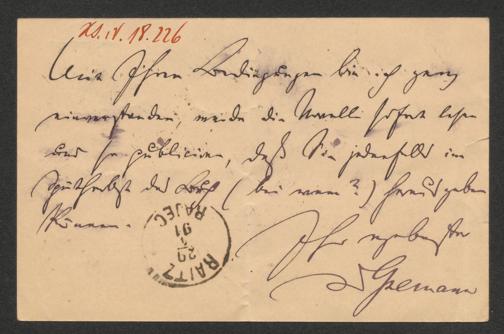 XS. IV. 18. 226
Mit Ihren Bedingungen bin ich ganz
einverstanden, werde die Novelle sofort lesen
und so publiciren, daß Sie jedenfalls im
Spätherbst das Buch (bei wem?) herausgeben
können.
Ihr ergebenster
RAITZ
29
91
RAJEC